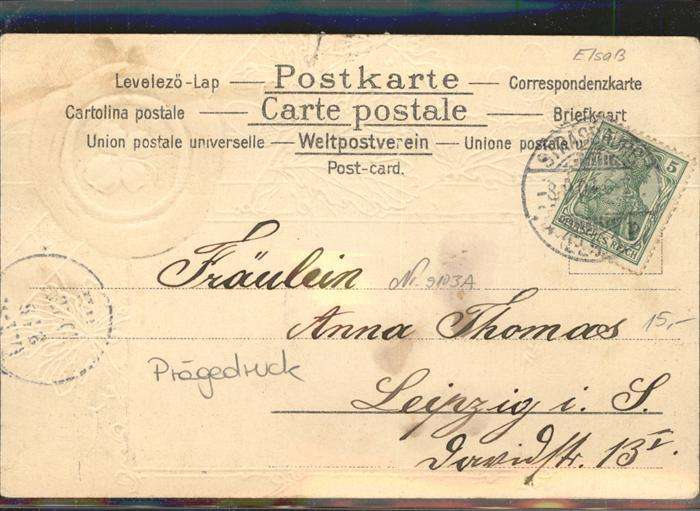 Elsaß
Levelező-Lap — Postkarte — Correspondenzkarte
Cartolina postale — Carte postale — Briefkaart
Union postale universelle — Weltpostverein — Unione postale u
Post-card.
STRASSBURG
5
DEUTSCHES REICH
Fräulein Nr. 9103A
Anna Thomas 15,-
Prägedruck
Leipzig i. S.
Davidstr. 13 I.